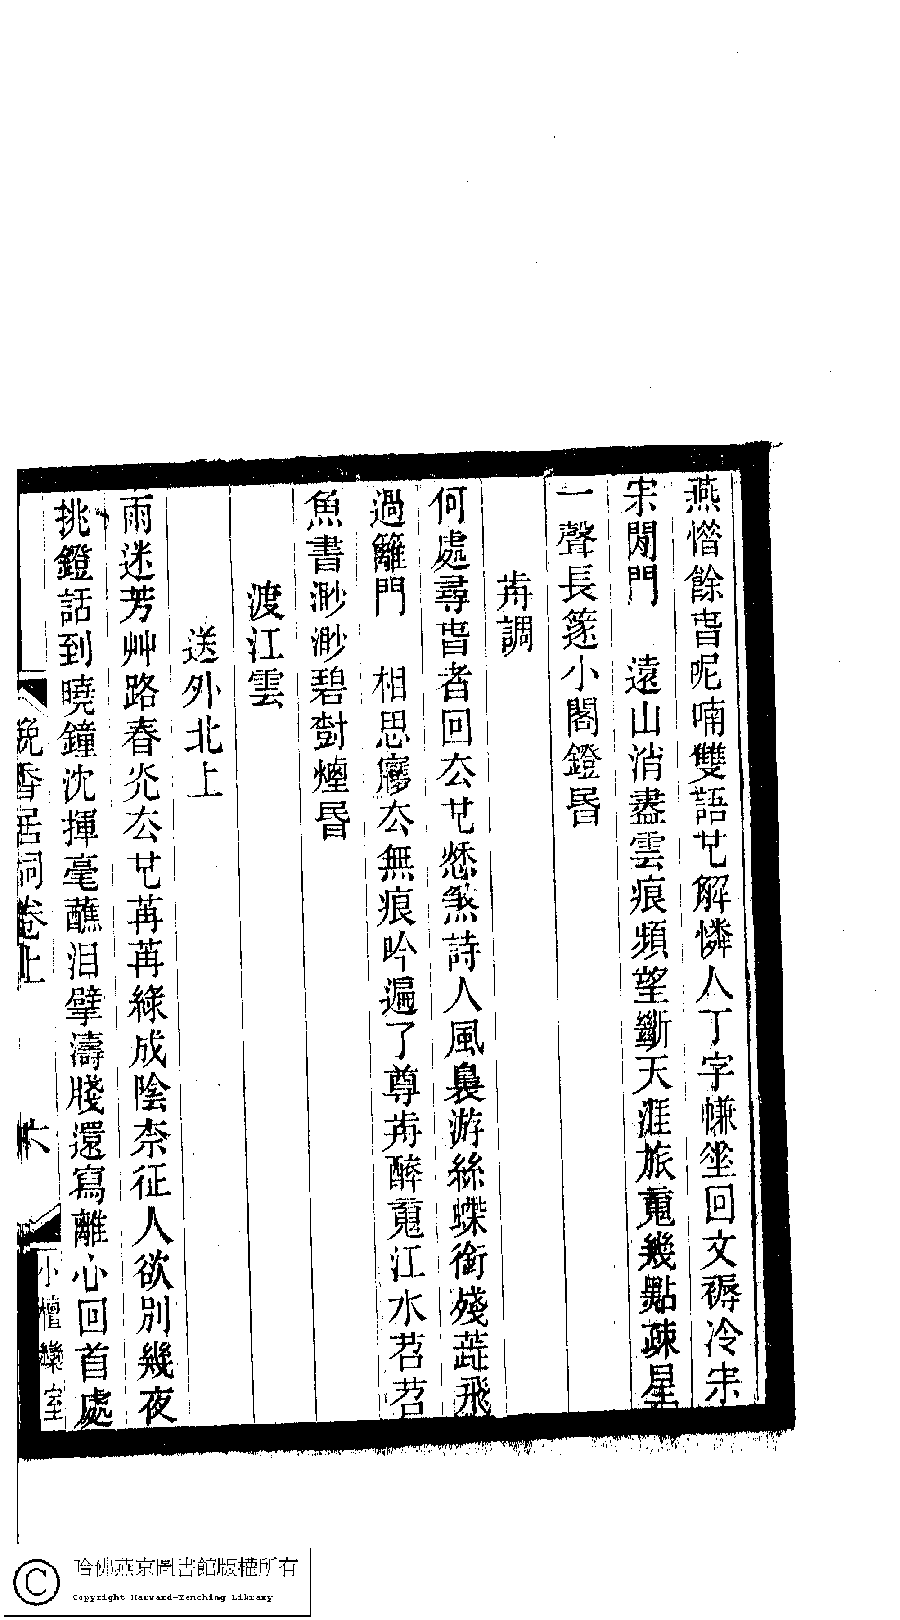 燕㥽餘旾呢喃雙語𠀍解憐人丁字㡘坐回文褥冷宋
宋閒門　遠山消盡雲痕頻望斷天涯旅䰟幾點疎星
一聲長篴小閣鐙昬
歬調
何處尋旾旾回厺𠀍㤅煞詩人風裊游絲蝶銜殘蕋飛
過籬門　相思㝱厺無痕吟遍了尊歬醉䰟江水苕苕
魚書渺渺碧𡬾煙昬
渡江雲
送外北上
雨迷芳艸路春灮厺𠀍苒苒綠成陰柰征人欲別幾夜
挑鐙話到曉鐘沈揮毫蘸泪擘濤牋還寫離心回首處
晚香居詞卷上
六
小檀欒室
哈佛燕京圖書館版權所有
Copyright Harvard-Yenching Library